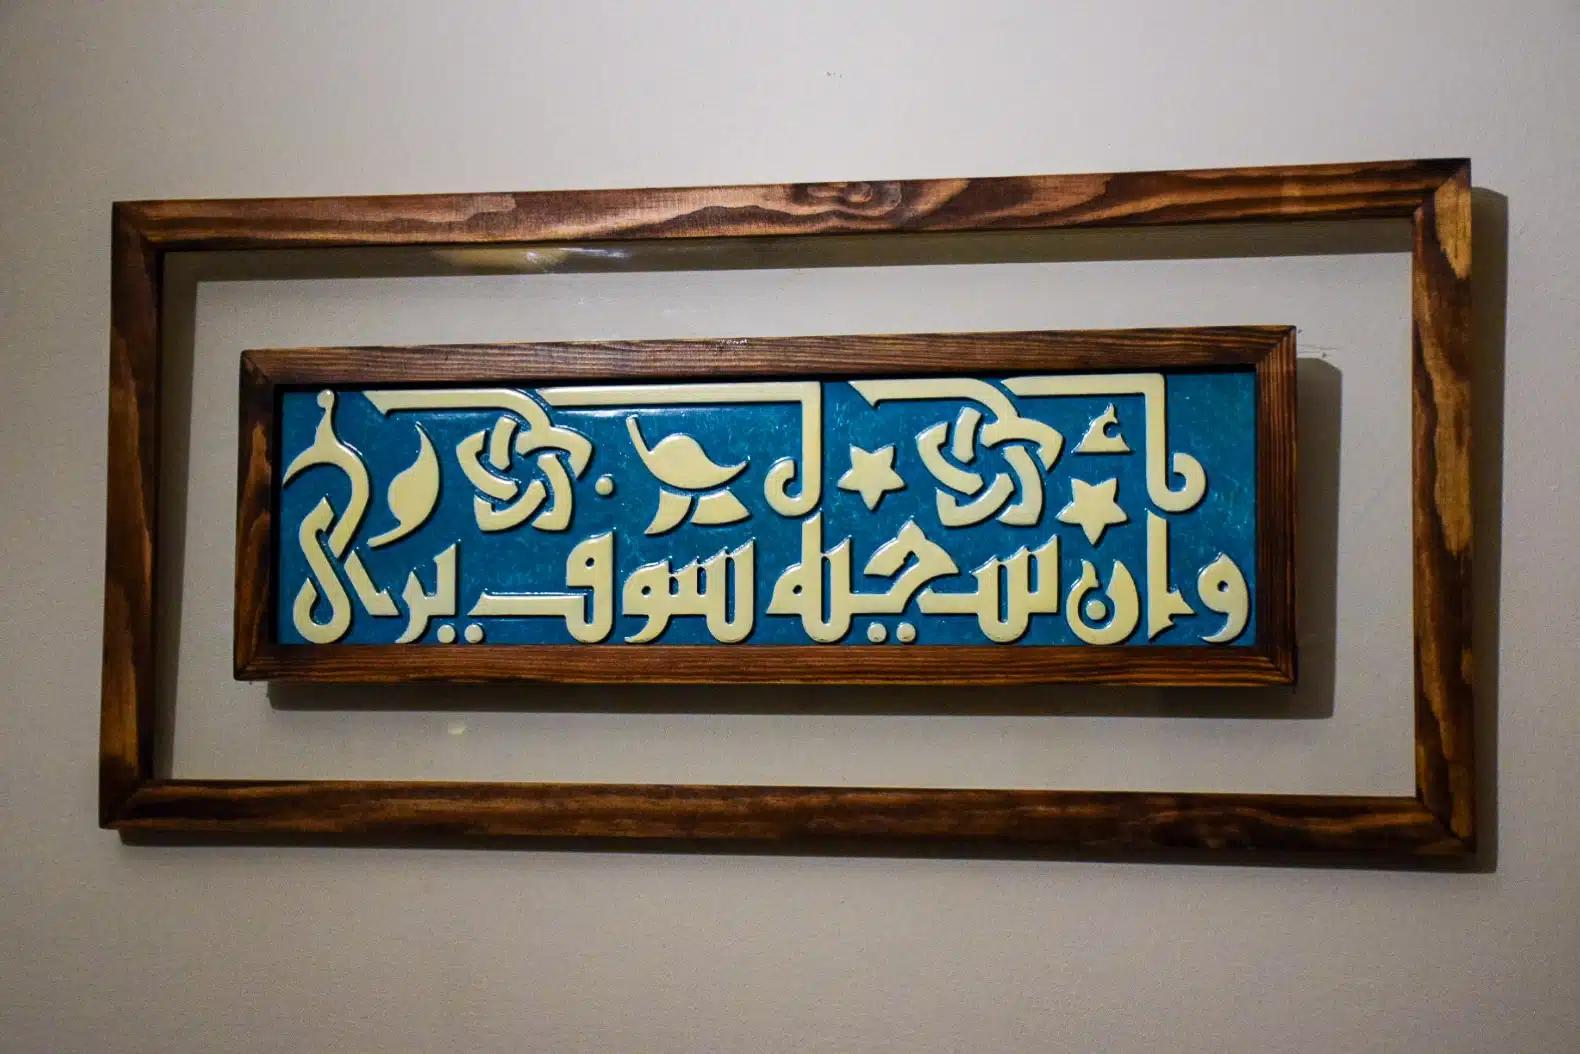 وأن سعيه سوف يرى